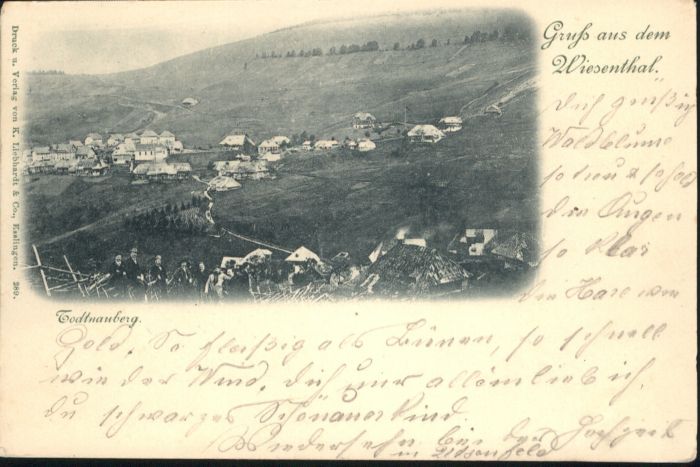 Gruß aus dem
Wiesenthal.
Druck u. Verlag von K. Liebhardt & Co., Esslingen. 289.
Todtnauberg.
Dich grüß ich
Waldblume
so treu &
die Augen
so klar
die Hare wie
Gold. So fleißig als Bienen, so schnell
wie der Wind, dich nur allein lieb ich,
du schwarzes Schönauerkind.
Wiedersehn bei der Hochzeit
in